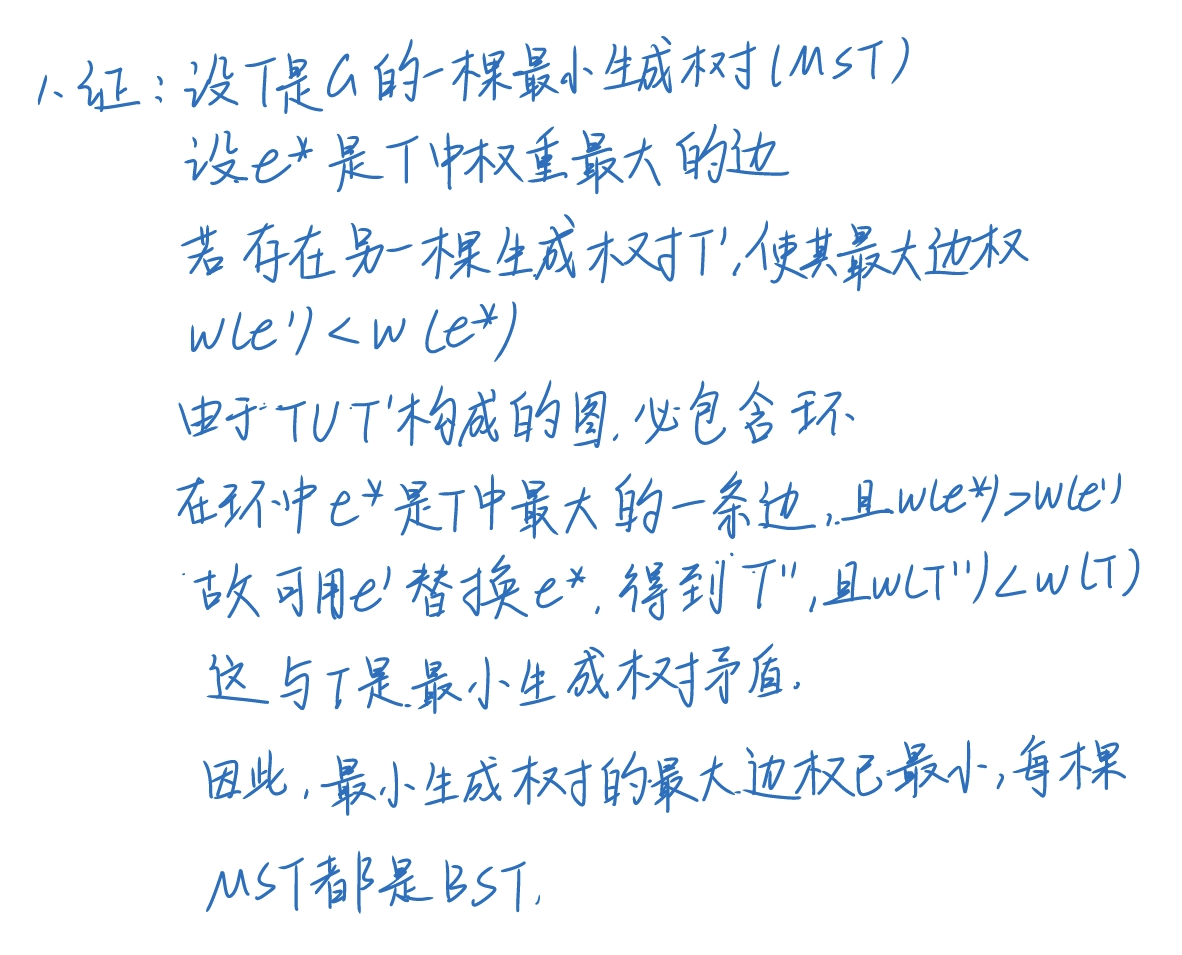 1、证：设T是G的一棵最小生成树(MST)
设e*是T中权重最大的边
若存在另一棵生成树T',使其最大边权
w(e')<w(e*)
由于T∪T'构成的图,必包含环
在环中e*是T中最大的一条边,且w(e*)>w(e')
故可用e'替换e*,得到T'',且w(T'')<w(T)
这与T是最小生成树矛盾.
因此,最小生成树的最大边权已最小,每棵
MST都是BST.